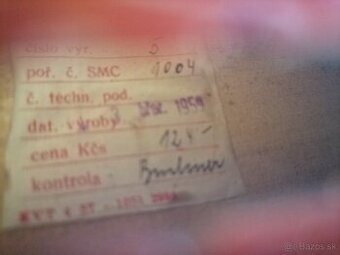 číslo výr. 5
poř. č. SMC 1004
č. techn. pod.
dat. výroby 1959
cena Kčs 124,-
kontrola:
Bazos.sk